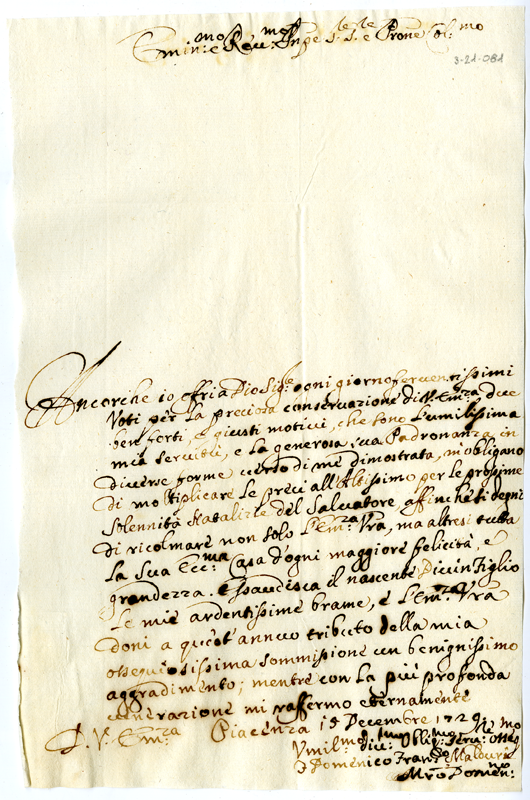 Emin:mo e Reu:mo Sig:re Sig:re e Prone Col:mo
3-21-081
Ancorche io offra a Dio Sig:re ogni giorno feruentissimi
Voti per la preciosa conservazione di V. Em:za due
ben forti, e giusti motivi, che sono l'umilissima
mia servitù, e la generosa sua Padronanza in
diverse forme verso di me dimostrata, m'obligano
di moltiplicare le preci all'Altissimo per le prossime
solennità Natalizie del Salvatore affinche si degni
di ricolmare non solo l'Em:za Vra, ma altresi tutta
la Sua Ecc:ma Casa d'ogni maggiore felicità, e
grandezza. Essaudisca il nascente Divin Figlio
le mie ardentissime brame, e l'Em:za Vra
doni a quest'annuo tributo della mia
ossequiosissima sommissione un benignissimo
aggradimento; mentre con la più profonda
venerazione mi raffermo eternamente
D. V. Em:za Piacenza 15 Decembre 1729
Vmil:mo Diu:mo Oblig:mo Seru:re Osseq:mo
Domenico Fran:co
Mro Domen:no